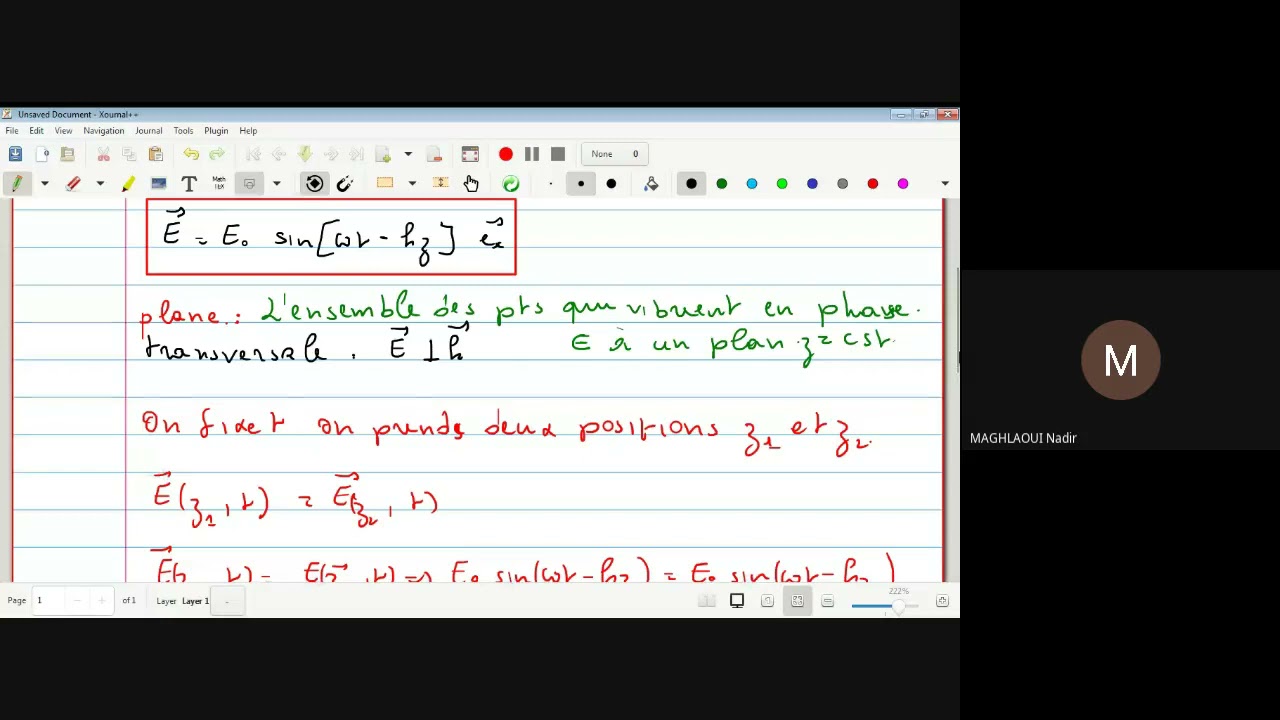 Unsaved Document - Xournal++
File Edit View Navigation Journal Tools Plugin Help
None 0
T Math TEX
E⃗ = E₀ sin[ωt - kz] e⃗ₓ
plane : L'ensemble des pts qui vibrent en phase.
∈ à un plan z = cst.
transversale . E⃗ ⊥ k⃗
On fixe t on prends deux positions z₁ et z₂.
E⃗(z₁, t) = E⃗(z₂, t)
MAGHLAOUI Nadir
M
Page 1 of 1 Layer Layer 1
222%